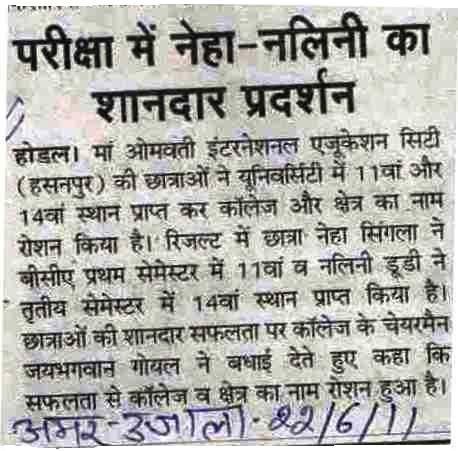 परीक्षा में नेहा-नलिनी का
शानदार प्रदर्शन
होडल। मां ओमवती इंटरनेशनल एजूकेशन सिटी
(हसनपुर) की छात्राओं ने यूनिवर्सिटी में 11वां और
14वां स्थान प्राप्त कर कॉलेज और क्षेत्र का नाम
रोशन किया है। रिजल्ट में छात्रा नेहा सिंगला ने
बीसीए प्रथम सेमेस्टर में 11वां व नलिनी डूडी ने
तृतीय सेमेस्टर में 14वां स्थान प्राप्त किया है।
छात्राओं की शानदार सफलता पर कॉलेज के चेयरमैन
जयभगवान गोयल ने बधाई देते हुए कहा कि
सफलता से कॉलेज व क्षेत्र का नाम रोशन हुआ है।
अमर-उजाला-22/6/11